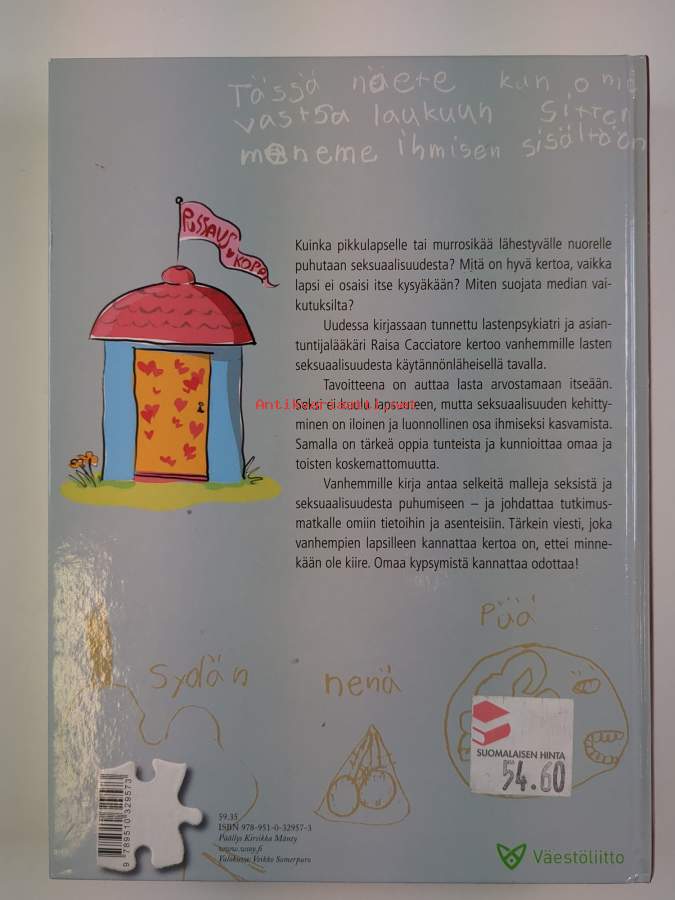 Tässä näete kun o me
vastsa laukuun sitten
maneme ihmisen sisältöön
PUSSAUS
KOPPI
Kuinka pikkulapselle tai murrosikää lähestyvälle nuorelle
puhutaan seksuaalisuudesta? Mitä on hyvä kertoa, vaikka
lapsi ei osaisi itse kysyäkään? Miten suojata median vai-
kutuksilta?
Uudessa kirjassaan tunnettu lastenpsykiatri ja asian-
tuntijalääkäri Raisa Cacciatore kertoo vanhemmille lasten
seksuaalisuudesta käytännönläheisellä tavalla.
Tavoitteena on auttaa lasta arvostamaan itseään.
Seksi ei kuulu lapsuuteen, mutta seksuaalisuuden kehitty-
minen on iloinen ja luonnollinen osa ihmiseksi kasvamista.
Samalla on tärkeä oppia tunteista ja kunnioittaa omaa ja
toisten koskemattomuutta.
Vanhemmille kirja antaa selkeitä malleja seksistä ja
seksuaalisuudesta puhumiseen – ja johdattaa tutkimus-
matkalle omiin tietoihin ja asenteisiin. Tärkein viesti, joka
vanhempien lapsilleen kannattaa kertoa on, ettei minne-
kään ole kiire. Omaa kypsymistä kannattaa odottaa!
Antikvariaatti.net
Püä
sydän
nenä
SUOMALAISEN HINTA
54.60
9 789510 329573
59.35
ISBN 978-951-0-32957-3
Päällys Kirsikka Mänty
www.wsoy.fi
Valokuva: Veikko Somerpuro
Väestöliitto